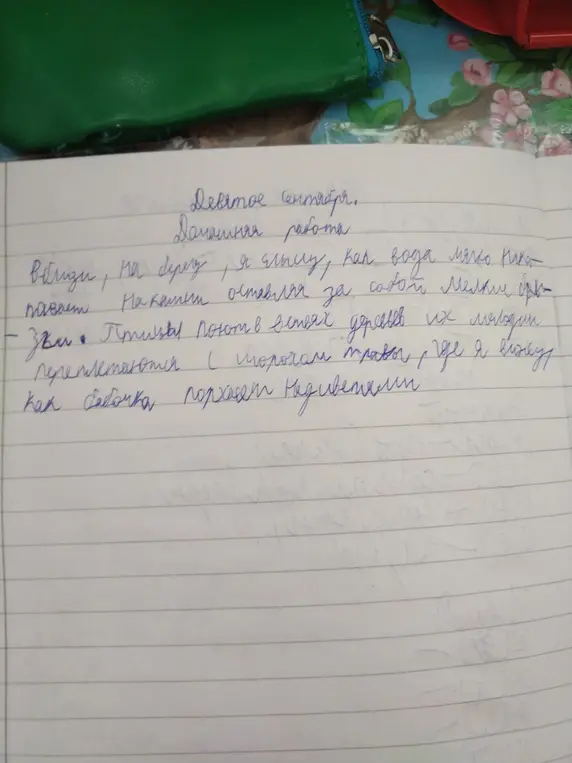 Девятое сентября.
Домашняя работа
Вблизи, на берегу, я слышу, как вода мягко нака-
тывает на камни оставляя за собой мелкие бры-
зги. Птицы поют в ветвях деревьев их мелодии
переплетаются с шорохом травы, где я вижу,
как бабочка порхает над цветами